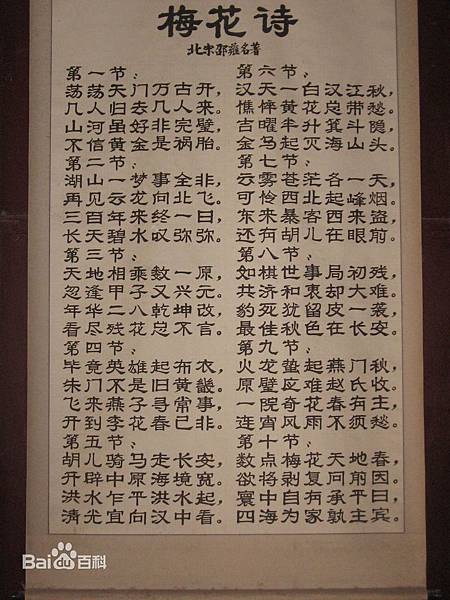 梅花诗
北宋邵雍名著
第一节：
荡荡天门万古开，
几人归去几人来。
山河虽好非完璧，
不信黄金是祸胎。
第二节：
湖山一梦事全非，
再见云龙向北飞。
三百年来终一日，
长天碧水叹弥弥。
第三节：
天地相乘数一原，
忽逢甲子又兴元。
年华二八乾坤改，
看尽残花总不言。
第四节：
毕竟英雄起布衣，
朱门不是旧黄畿。
飞来燕子寻常事，
开到李花春已非。
第五节：
胡儿骑马走长安，
开辟中原海境宽。
洪水乍平洪水起，
清光宜向汉中看。
第六节：
汉天一白汉江秋，
憔悴黄花总带愁。
吉曜半升箕斗隐，
金乌起灭海山头。
第七节：
云雾苍茫各一天，
可怜西北起烽烟。
东来暴客西来盗，
还有胡儿在眼前。
第八节：
如棋世事局初残，
共济和衷却大难。
豹死犹留皮一袭，
最佳秋色在长安。
第九节：
火龙蛰起燕门秋，
原璧应难赵氏收。
一院奇花春有主，
连宵风雨不须愁。
第十节：
数点梅花天地春，
欲将剥复问前因。
寰中自有承平日，
四海为家孰主宾。
Bai du 百科